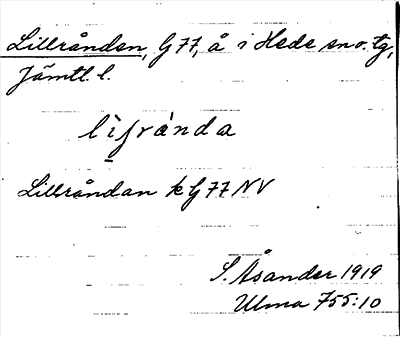 Lillråndan, G 77, å i Hede sn o. tg,
Jämtl. l.
Lillråndan k G 77 NV
S. Åsander 1919
Ulma 755:10